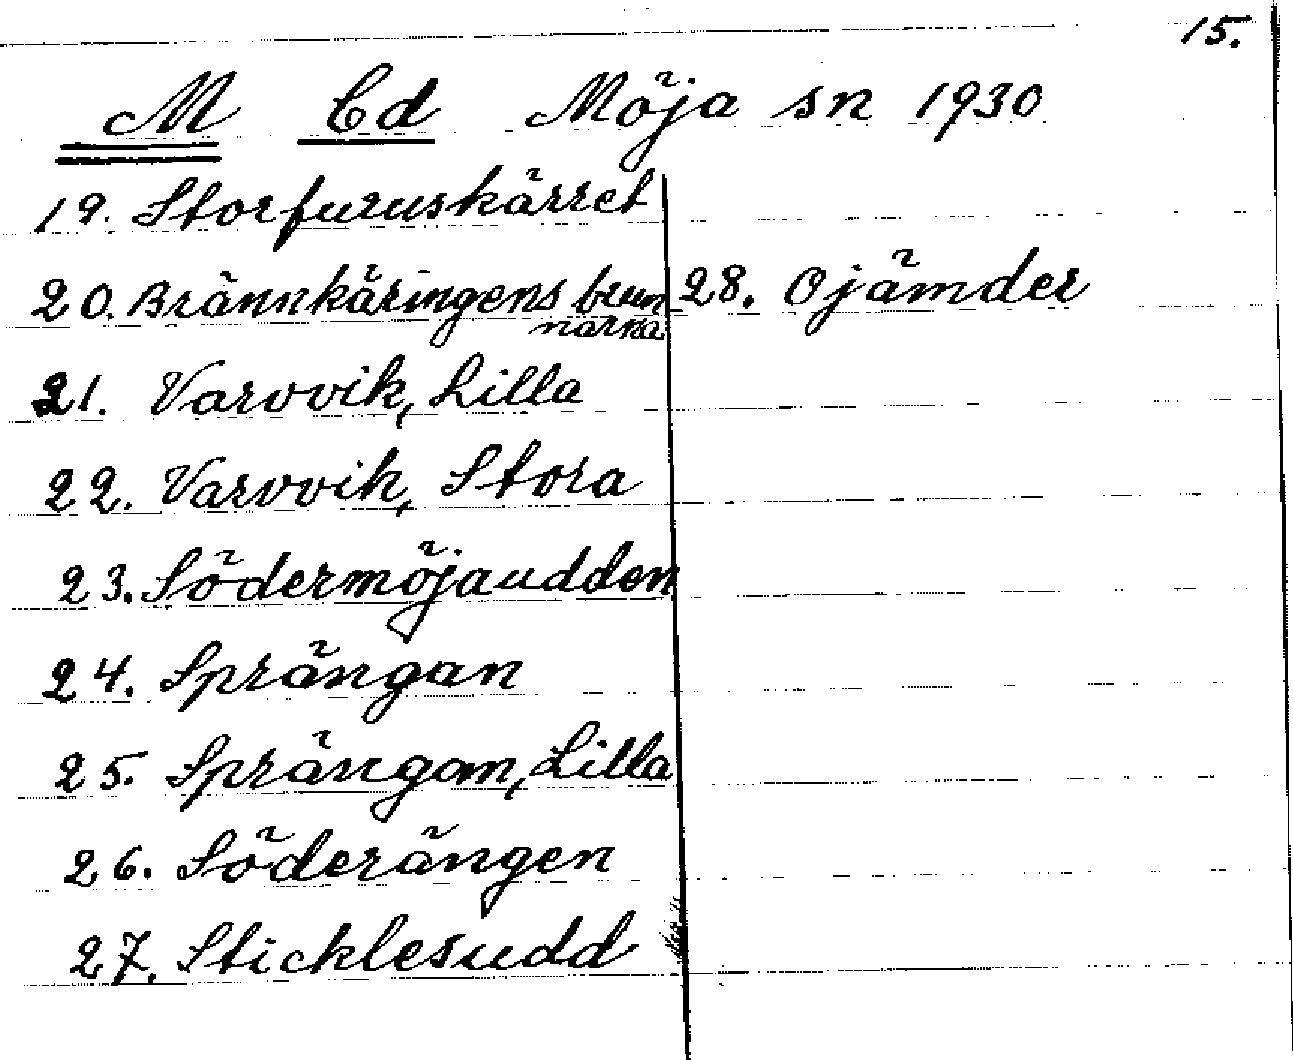 15.
M Cd Möja sn 1930
19. Storfuruskärret
20. Brännkäringens brun
narna
21. Varvvik, Lilla
22. Varvvik, Stora
23. Södermöjaudden
24. Sprängan
25. Sprängan, Lilla
26. Söderängen
27. Sticklesudd
28. Ojämder